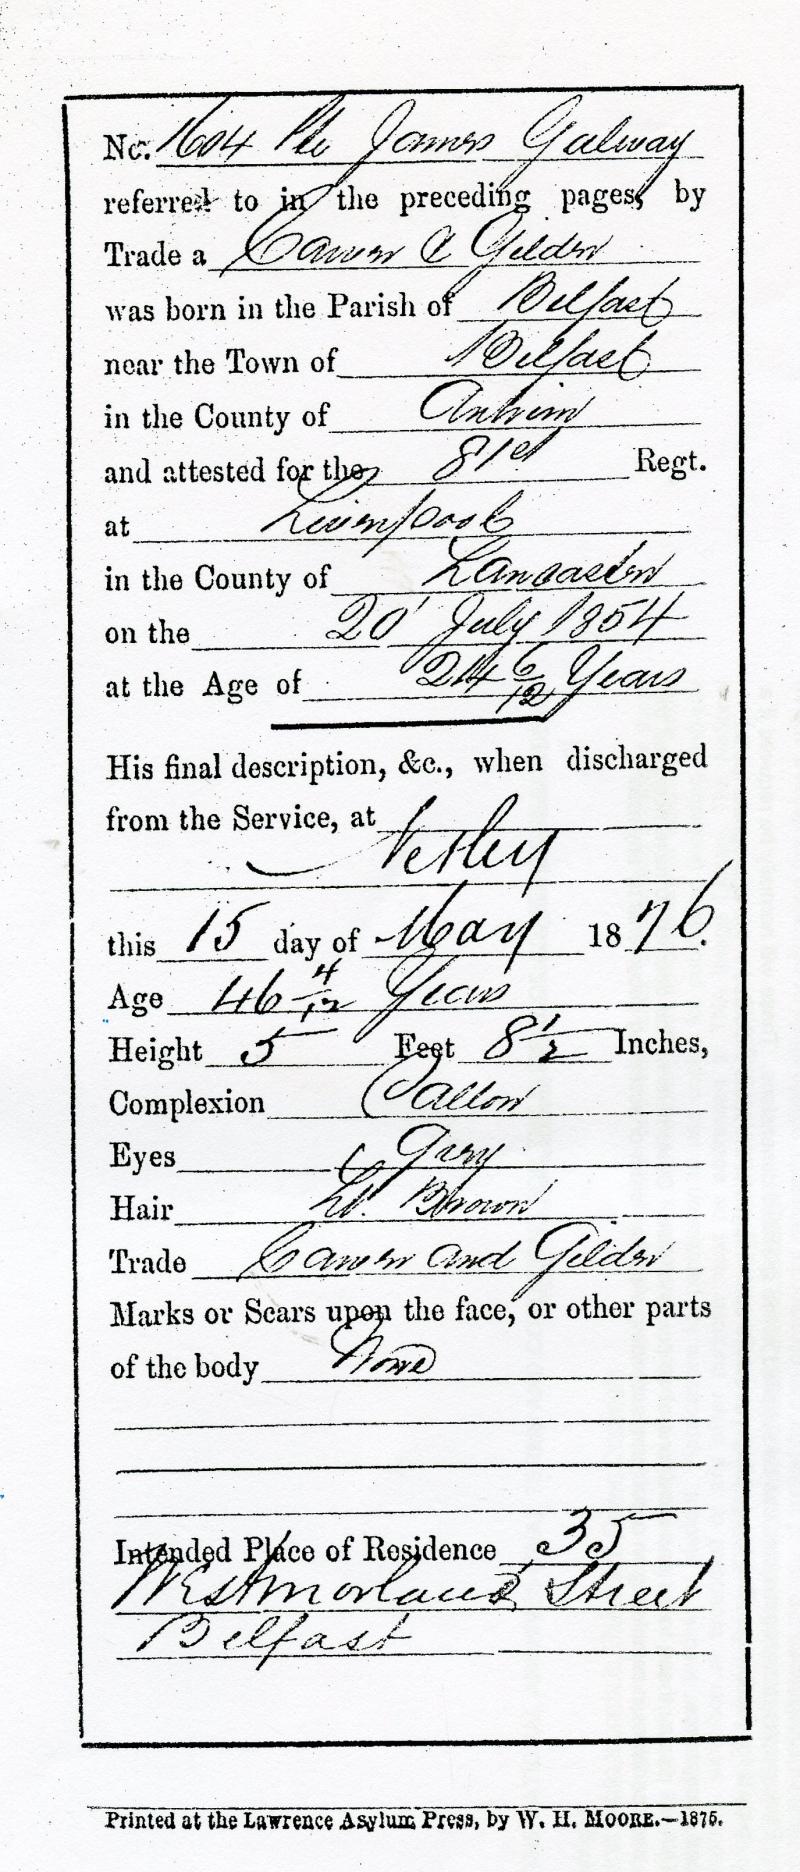 No. 1604 Pte James Galway
referred to in the preceding pages, by
Trade a Carver & Gilder
was born in the Parish of Belfast
near the Town of Belfast
in the County of Antrim
and attested for the 81st Regt.
at Liverpool
in the County of Lancaster
on the 20' July 1854
at the Age of 24 6/12 Years
His final description, &c., when discharged
from the Service, at
Netley
this 15 day of May 1876.
Age 46 4/12 Years
Height 5 Feet 8½ Inches,
Complexion Sallow
Eyes Grey
Hair Lt. Brown
Trade Carver and Gilder
Marks or Scars upon the face, or other parts
of the body None
Intended Place of Residence 35
Westmorland Street
Belfast
Printed at the Lawrence Asylum Press, by W. H. MOORE.—1875.